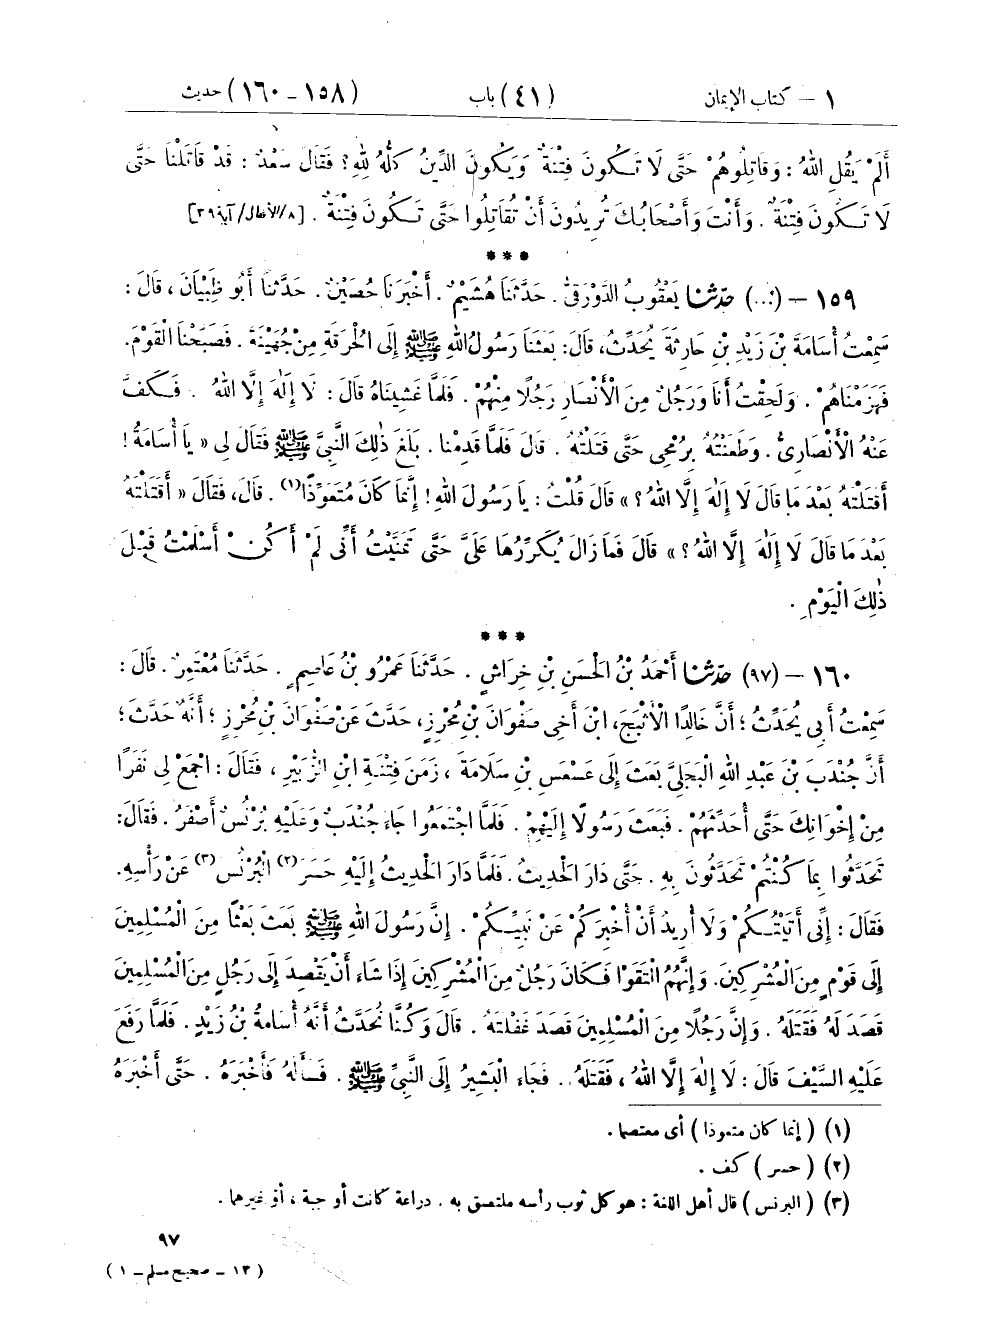 ١ – كتاب الإيمان (٤١) باب (١٥٨ – ١٦٠) حديث
أَلَمْ يَقُلِ اللهُ : وَقَاتِلُوهُمْ حَتَّى لَا تَكُونَ فِتْنَةٌ وَيَكُونَ الدِّينُ كُلُّهُ لِلهِ؟ فَقَالَ سَعْدٌ : قَدْ قَاتَلْنَا حَتَّى
لَا تَكُونَ فِتْنَةٌ . وَأَنْتَ وَأَصْحَابُكَ تُرِيدُونَ أَنْ تُقَاتِلُوا حَتَّى تَكُونَ فِتْنَةٌ . [٨/الأنفال/آية ٣٩]
***
١٥٩ – (...) حَدَّثَنَا يَعْقُوبُ الدَّوْرَقِيُّ . حَدَّثَنَا هُشَيْمٌ . أَخْبَرَنَا حُصَيْنٌ . حَدَّثَنَا أَبُو ظَبْيَانَ ، قَالَ :
سَمِعْتُ أُسَامَةَ بْنَ زَيْدِ بْنِ حَارِثَةَ يُحَدِّثُ، قَالَ: بَعَثَنَا رَسُولُ اللهِ ﷺ إِلَى الْحُرَقَةِ مِنْ جُهَيْنَةَ . فَصَبَّحْنَا الْقَوْمَ.
فَهَزَمْنَاهُمْ . وَلَحِقْتُ أَنَا وَرَجُلٌ مِنَ الْأَنْصَارِ رَجُلًا مِنْهُمْ . فَلَمَّا غَشِينَاهُ قَالَ : لَا إِلٰهَ إِلَّا اللهُ . فَكَفَّ
عَنْهُ الْأَنْصَارِيُّ . وَطَعَنْتُهُ بِرُمْحِي حَتَّى قَتَلْتُهُ . قَالَ فَلَمَّا قَدِمْنَا . بَلَغَ ذٰلِكَ النَّبِيَّ ﷺ فَقَالَ لِي « يَا أُسَامَةُ !
أَقَتَلْتَهُ بَعْدَ مَا قَالَ لَا إِلٰهَ إِلَّا اللهُ ؟ » قَالَ قُلْتُ : يَا رَسُولَ اللهِ ! إِنَّمَا كَانَ مُتَعَوِّذًا(١) . قَالَ، فَقَالَ « أَقَتَلْتَهُ
بَعْدَ مَا قَالَ لَا إِلٰهَ إِلَّا اللهُ ؟ » قَالَ فَمَا زَالَ يُكَرِّرُهَا عَلَيَّ حَتَّى تَمَنَّيْتُ أَنِّي لَمْ أَكُنْ أَسْلَمْتُ قَبْلَ
ذٰلِكَ الْيَوْمِ .
***
١٦٠ – (٩٧) حَدَّثَنَا أَحْمَدُ بْنُ الْحَسَنِ بْنِ خِرَاشٍ . حَدَّثَنَا عَمْرُو بْنُ عَاصِمٍ . حَدَّثَنَا مُعْتَمِرٌ . قَالَ :
سَمِعْتُ أَبِي يُحَدِّثُ ؛ أَنَّ خَالِدًا الْأَثْبَجَ، ابْنَ أَخِي صَفْوَانَ بْنِ مُحْرِزٍ، حَدَّثَ عَنْ صَفْوَانَ بْنِ مُحْرِزٍ ؛ أَنَّهُ حَدَّثَ ؛
أَنَّ جُنْدَبَ بْنَ عَبْدِ اللهِ الْبَجَلِيَّ بَعَثَ إِلَى عَسْعَسِ بْنِ سَلَامَةَ ، زَمَنَ فِتْنَةِ ابْنِ الزُّبَيْرِ ، فَقَالَ : اجْمَعْ لِي نَفَرًا
مِنْ إِخْوَانِكَ حَتَّى أُحَدِّثَهُمْ . فَبَعَثَ رَسُولًا إِلَيْهِمْ . فَلَمَّا اجْتَمَعُوا جَاءَ جُنْدَبٌ وَعَلَيْهِ بُرْنُسٌ أَصْفَرُ . فَقَالَ:
تَحَدَّثُوا بِمَا كُنْتُمْ تَحَدَّثُونَ بِهِ . حَتَّى دَارَ الْحَدِيثُ . فَلَمَّا دَارَ الْحَدِيثُ إِلَيْهِ حَسَرَ(٢) الْبُرْنُسَ(٣) عَنْ رَأْسِهِ.
فَقَالَ : إِنِّي أَتَيْتُكُمْ وَلَا أُرِيدُ أَنْ أُخْبِرَكُمْ عَنْ نَبِيِّكُمْ . إِنَّ رَسُولَ اللهِ ﷺ بَعَثَ بَعْثًا مِنَ الْمُسْلِمِينَ
إِلَى قَوْمٍ مِنَ الْمُشْرِكِينَ. وَإِنَّهُمُ الْتَقَوْا فَكَانَ رَجُلٌ مِنَ الْمُشْرِكِينَ إِذَا شَاءَ أَنْ يَقْصِدَ إِلَى رَجُلٍ مِنَ الْمُسْلِمِينَ
قَصَدَ لَهُ فَقَتَلَهُ . وَإِنَّ رَجُلًا مِنَ الْمُسْلِمِينَ قَصَدَ غَفْلَتَهُ . قَالَ وَكُنَّا نُحَدَّثُ أَنَّهُ أُسَامَةُ بْنُ زَيْدٍ . فَلَمَّا رَفَعَ
عَلَيْهِ السَّيْفَ قَالَ : لَا إِلٰهَ إِلَّا اللهُ ، فَقَتَلَهُ . فَجَاءَ الْبَشِيرُ إِلَى النَّبِيِّ ﷺ . فَسَأَلَهُ فَأَخْبَرَهُ . حَتَّى أَخْبَرَهُ
(١) ( إنما كان متعوذا ) أى معتصما .
(٢) ( حسر ) كف .
(٣) ( البرنس ) قال أهل اللغة : هو كل ثوب رأسه ملتصق به . دراعة كانت أو جبة ، أو غيرهما .
٩٧
( ١٣ – صحيح مسلم – ١ )